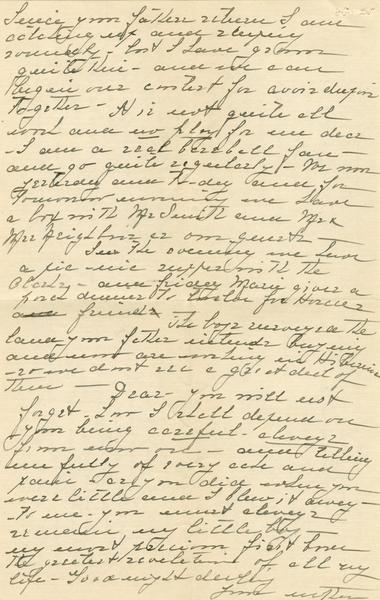 Since your father return I am
eating up and sleeping
soundly - but I have grown
quite thin - and we can
begin our contest for avoirdupois
together - It is not quite all
work and no play for me dear
- I am a real baseball fan -
and go quite regularly - We won
yesterday and to-day and for
tomorrow evening we have
a box with Mr Smith and Mr &
Mrs as our guests -
In the evening we have
a pic-nic supper with the
- and Friday Mary gives a
dinner to for
and friends
The boys surveyed the
land your father intends buying
and now are working in
- so we dont see a great deal of
them -
Dear - you will not
forget - I depend on
your being careful - always
from now on - and telling
me fully of every ache and
pain as you did when you
were little and I blew it away -
To me - you must always
remain my little boy -
my most precious first born
the greatest revelation of all my
life - Good night dearly
your mother